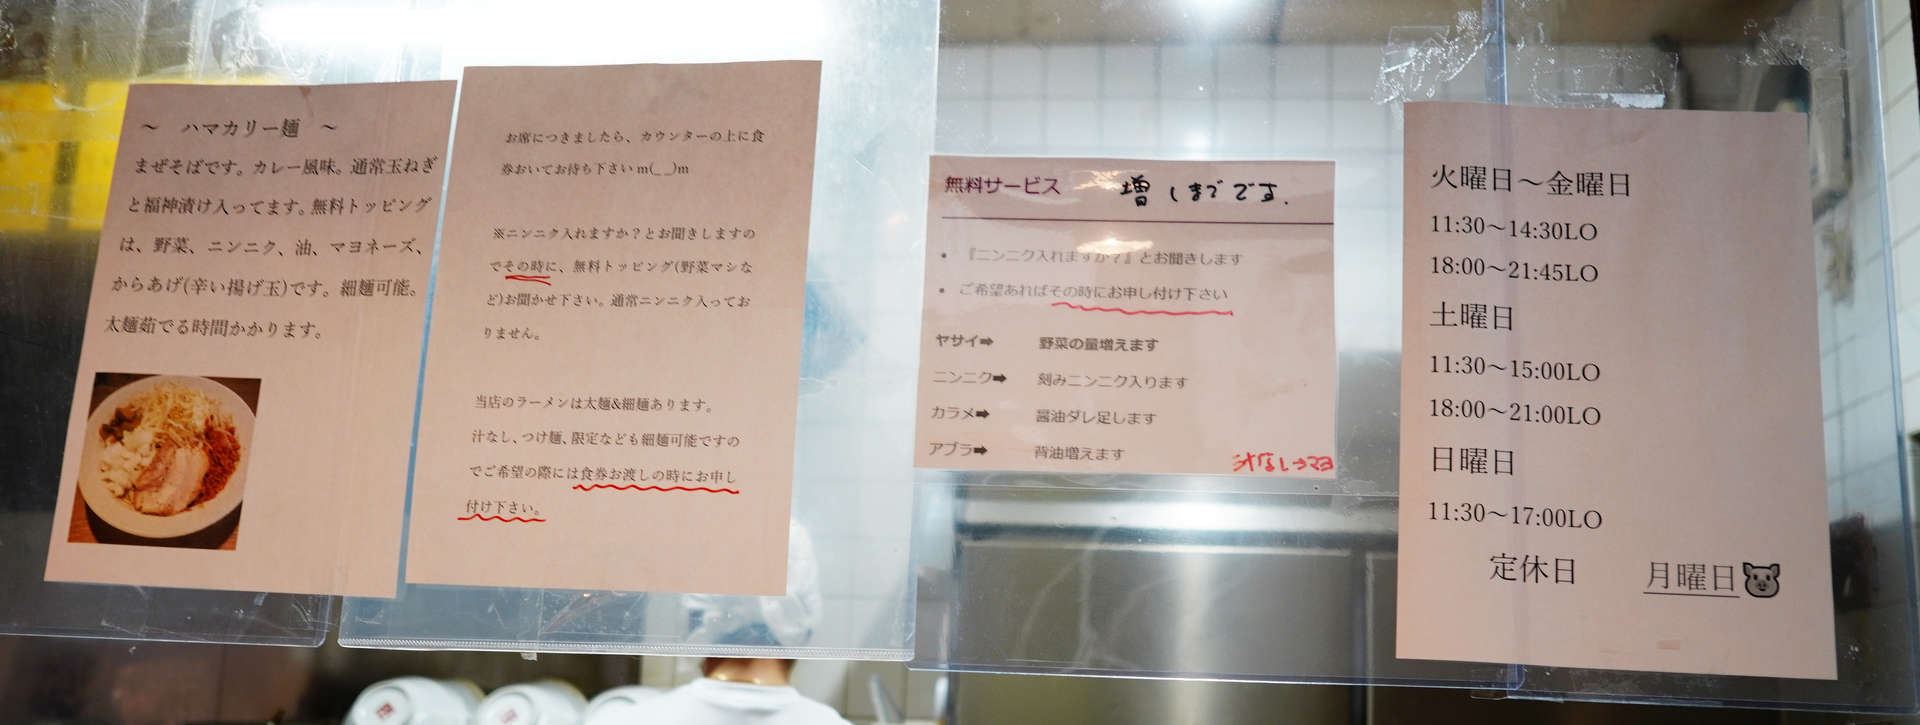 ～ ハマカリー麺 ～
まぜそばです。カレー風味。通常玉ねぎ
と福神漬け入ってます。無料トッピング
は、野菜、ニンニク、油、マヨネーズ、
からあげ(辛い揚げ玉)です。細麺可能。
太麺茹でる時間かかります。
お席につきましたら、カウンターの上に食
券おいてお待ち下さい m(_ _)m
※ニンニク入れますか？とお聞きしますの
でその時に、無料トッピング(野菜マシな
ど)お聞かせ下さい。通常ニンニク入ってお
りません。
当店のラーメンは太麺&細麺あります。
汁なし、つけ麺、限定なども細麺可能ですの
でご希望の際には食券お渡しの時にお申し
付け下さい。
無料サービス 増しまでです.
• 『ニンニク入れますか？』とお聞きします
• ご希望あればその時にお申し付け下さい
ヤサイ➡ 野菜の量増えます
ニンニク➡ 刻みニンニク入ります
カラメ➡ 醤油ダレ足します
アブラ➡ 背油増えます
マヨ
火曜日～金曜日
11:30～14:30LO
18:00～21:45LO
土曜日
11:30～15:00LO
18:00～21:00LO
日曜日
11:30～17:00LO
定休日 月曜日